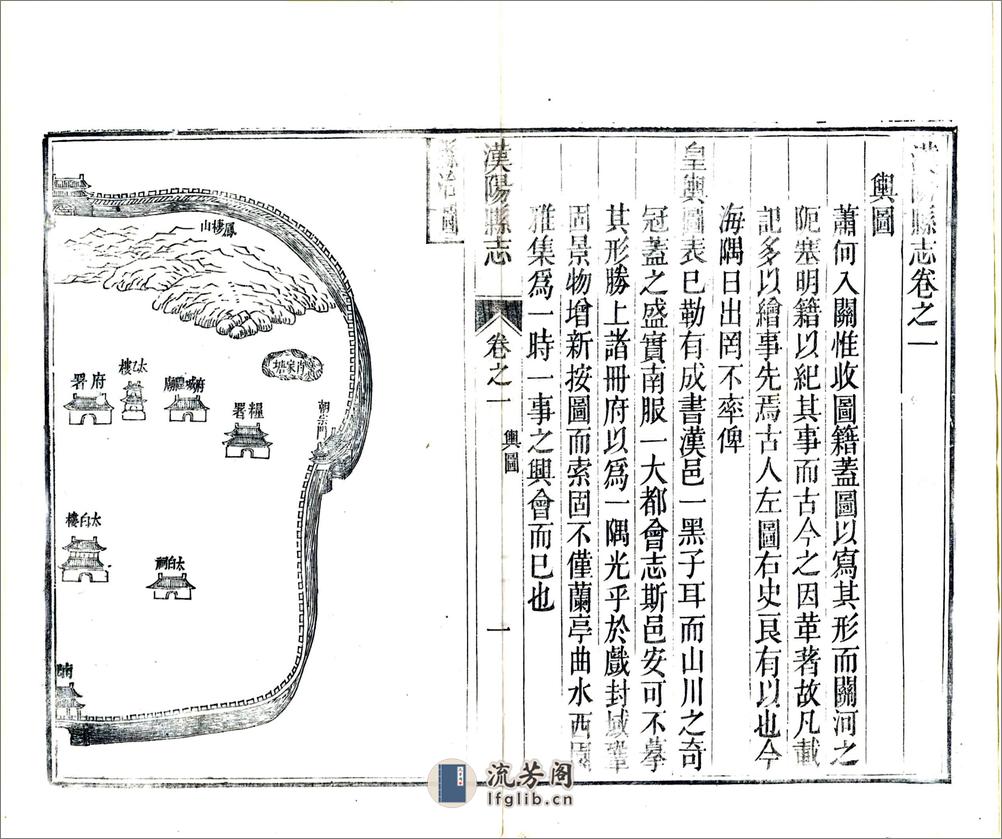 漢陽縣志卷之一
輿圖
蕭何入關惟收圖籍蓋圖以寫其形而關河之
阨塞明籍以紀其事而古今之因革著故凡載
記多以繪事先焉古人左圖右史良有以也今
海隅日出罔不率俾
皇輿圖表已勒有成書漢邑一黑子耳而山川之奇
冠蓋之盛實南服一大都會志斯邑安可不摹
其形勝上諸冊府以爲一隅光乎於戲封域鞏
固景物增新按圖而索固不僅蘭亭曲水西園
雅集爲一時一事之興會而已也
漢陽縣志
卷之一
輿圖
一
縣治圖
鳳棲山
朝宗門
糧署
府城隍廟
太乙樓
府署
太白樓
太白祠
流芳阁
lfglib.cn